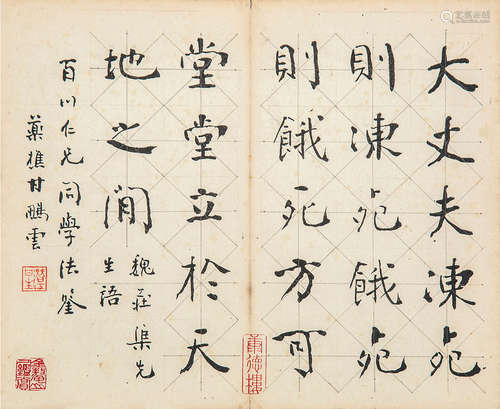 大丈夫凍死
則凍死餓死
則餓死方可
堂堂立於天
地之閒
魏莊渠先
生語
百川仁兄同學法
藥樵甘鵬雲